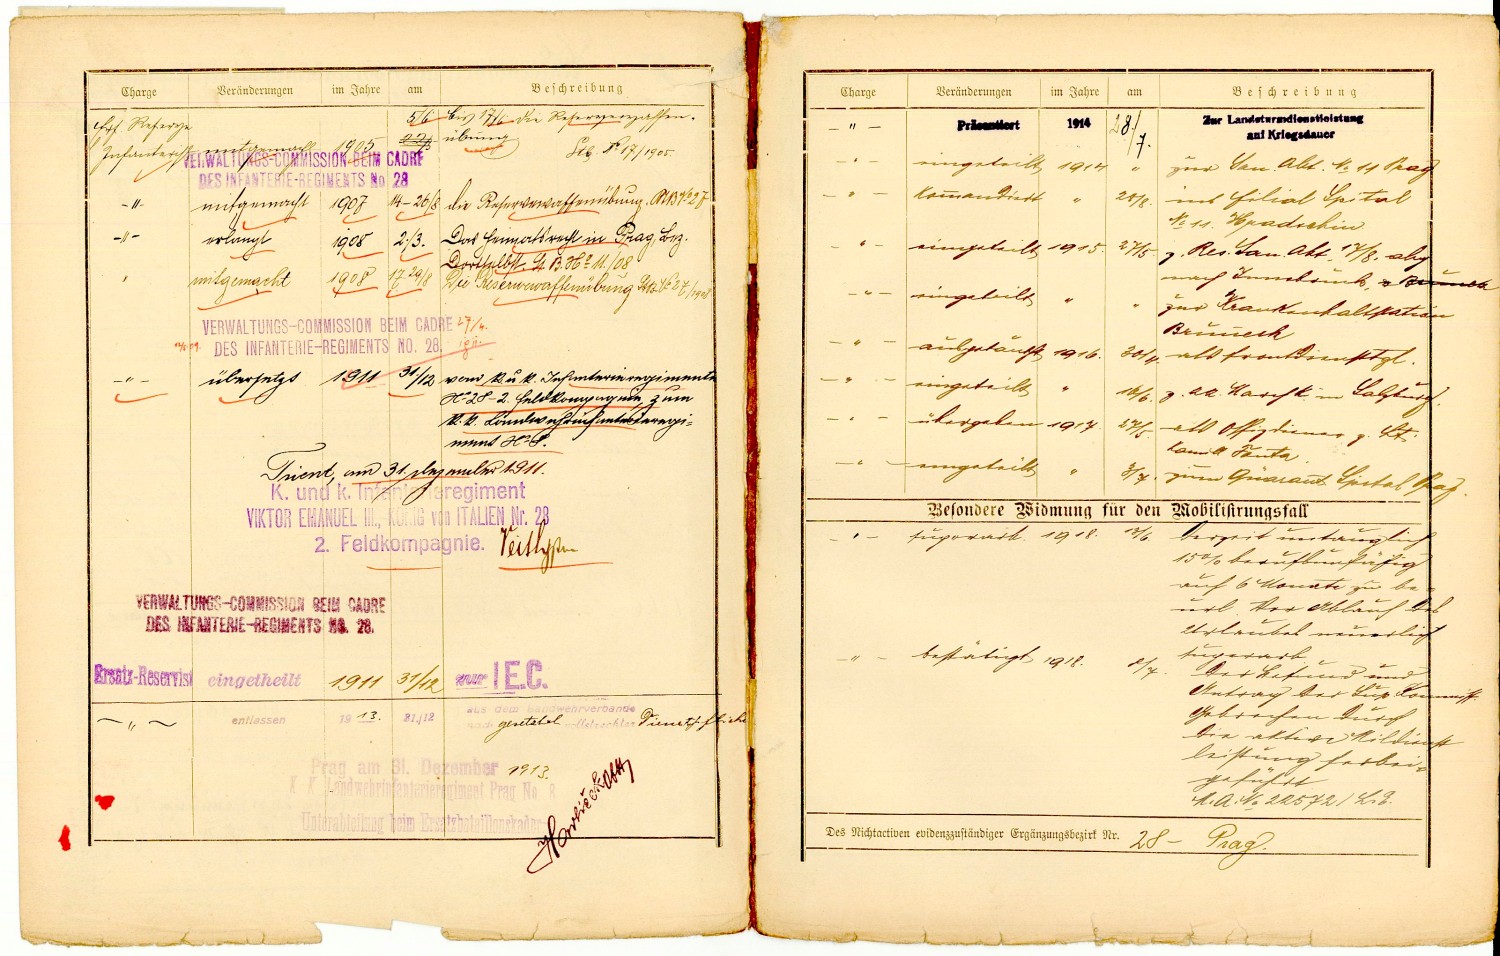 Charge Veränderungen im Jahre am Beschreibung
5/6 bis 17/6 die Reservewaffen-
Ers. Reserve
Infanterist mitgemacht 1905 übung
Stb. No 17/1905
VERWALTUNGS-COMMISSION BEIM CADRE
DES INFANTERIE-REGIMENTS No 28
-"- mitgemacht 1907 14-26/8 die Reservewaffenübung.
-"- erlangt 1908 2./3. Das Heimatsrecht in Prag, Bez.
Dortselbst. No 11/08
" mitgemacht 1908 17-29/8 Die Reservewaffenübung
VERWALTUNGS-COMMISSION BEIM CADRE 27/4.
DES INFANTERIE-REGIMENTS NO. 28.
-"- übersetzt 1911 31/12 vom k. u. k. Infanterieregimente
No 28 - 2. Feldkompagnie, zum
k.k. Landwehrinfanterieregi-
ment No 8.
Trient, am 31. Dezember 1911.
K. und k. Infanterieregiment
VIKTOR EMANUEL III., KÖNIG von ITALIEN Nr. 28
2. Feldkompagnie.
VERWALTUNGS-COMMISSION BEIM CADRE
DES INFANTERIE-REGIMENTS NO. 28.
Ersatz-Reservist eingetheilt 1911 31/12 zur I E.C.
aus dem Landwehrverbande
~ " ~ entlassen 1913. 31./12 nach gesetzl. vollstreckter Dienstpflicht
Prag am 31. Dezember 1913.
K K Landwehrinfanterieregiment Prag No 8
Unterabteilung beim Ersatzbataillonskader
Charge Veränderungen im Jahre am Beschreibung
-"- Präsentiert 1914 28/7. Zur Landsturmdienstleistung
auf Kriegsdauer
-"- eingeteilt 1914 " zur San. Abt. No 11 Prag
-"- Komandiert " 28/8. ins Filial Spital
No 11. Hradschin
-"- eingeteilt 1915 27/5. z. Res. San. Abt. 17/8. abg
nach Innsbruck, n Bruneck
-"- eingeteilt " " zur Krankenhaltstation
Bruneck
-"- 1916. 30/4. als frontdienstgl.
-"- eingeteilt " 16/6. z. XX Marschk in Salzburg.
-"- übergeben 1917 27/5. als Offizdiener z. Lt.
Kamill
-"- eingeteilt " 3/7. zum Quarant. Spital Prag.
Besondere Widmung für den Mobilisirungsfall
-"- superarb. 1918. 13/6. derzeit untauglich
15% berufsunfähig
auf 6 Monate zu be-
url. Vor Ablauf des
Urlaubes neuerlich
superarb.
-"- bestätigt 1918. 2/7. Der Befund und
Antrag der Sup. Kommiss.
Gebrechen durch
die aktive Mildienst
leistung herbei-
geführt
M.A. No 22572/
Des Nichtactiven evidenzzuständiger Ergänzungsbezirk Nr. 28 - Prag.